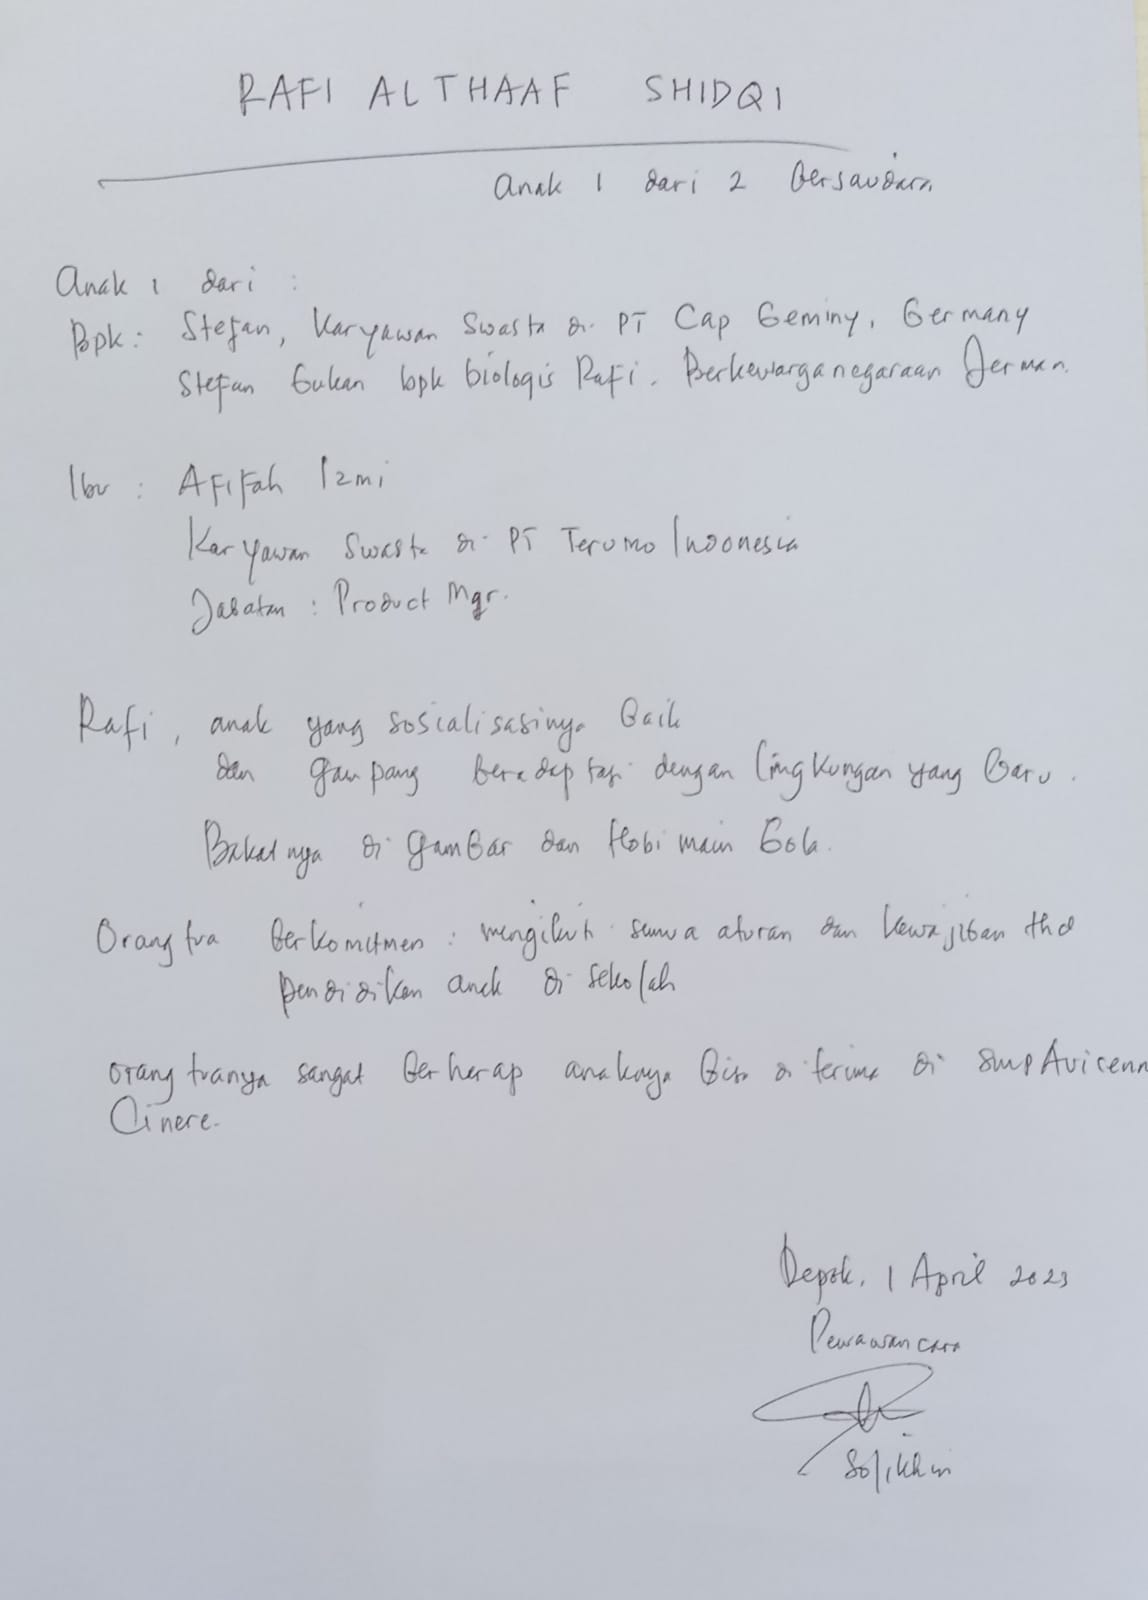 RAFI ALTHAAF SHIDQI
Anak 1 dari 2 bersaudara
Anak 1 dari :
Bpk : Stefan, Karyawan Swasta di PT Cap Geminy, Germany
Stefan bukan bpk biologis Rafi. Berkewarganegaraan Jerman.
Ibu : Afifah Izmi
Karyawan Swasta di PT Terumo Indonesia
Jabatan : Product Mgr.
Rafi, anak yang sosialisasinya baik
dan gampang beradaptasi dengan lingkungan yang baru.
Bakatnya di gambar dan Hobi main bola.
Orang tua berkomitmen : mengikuti semua aturan dan kewajiban thd
pendidikan anak di sekolah
Orang tuanya sangat berharap anaknya bisa diterima di SMP Avicenn
Cinere.
Depok, 1 April 2023
Pewawancara
Solikhin